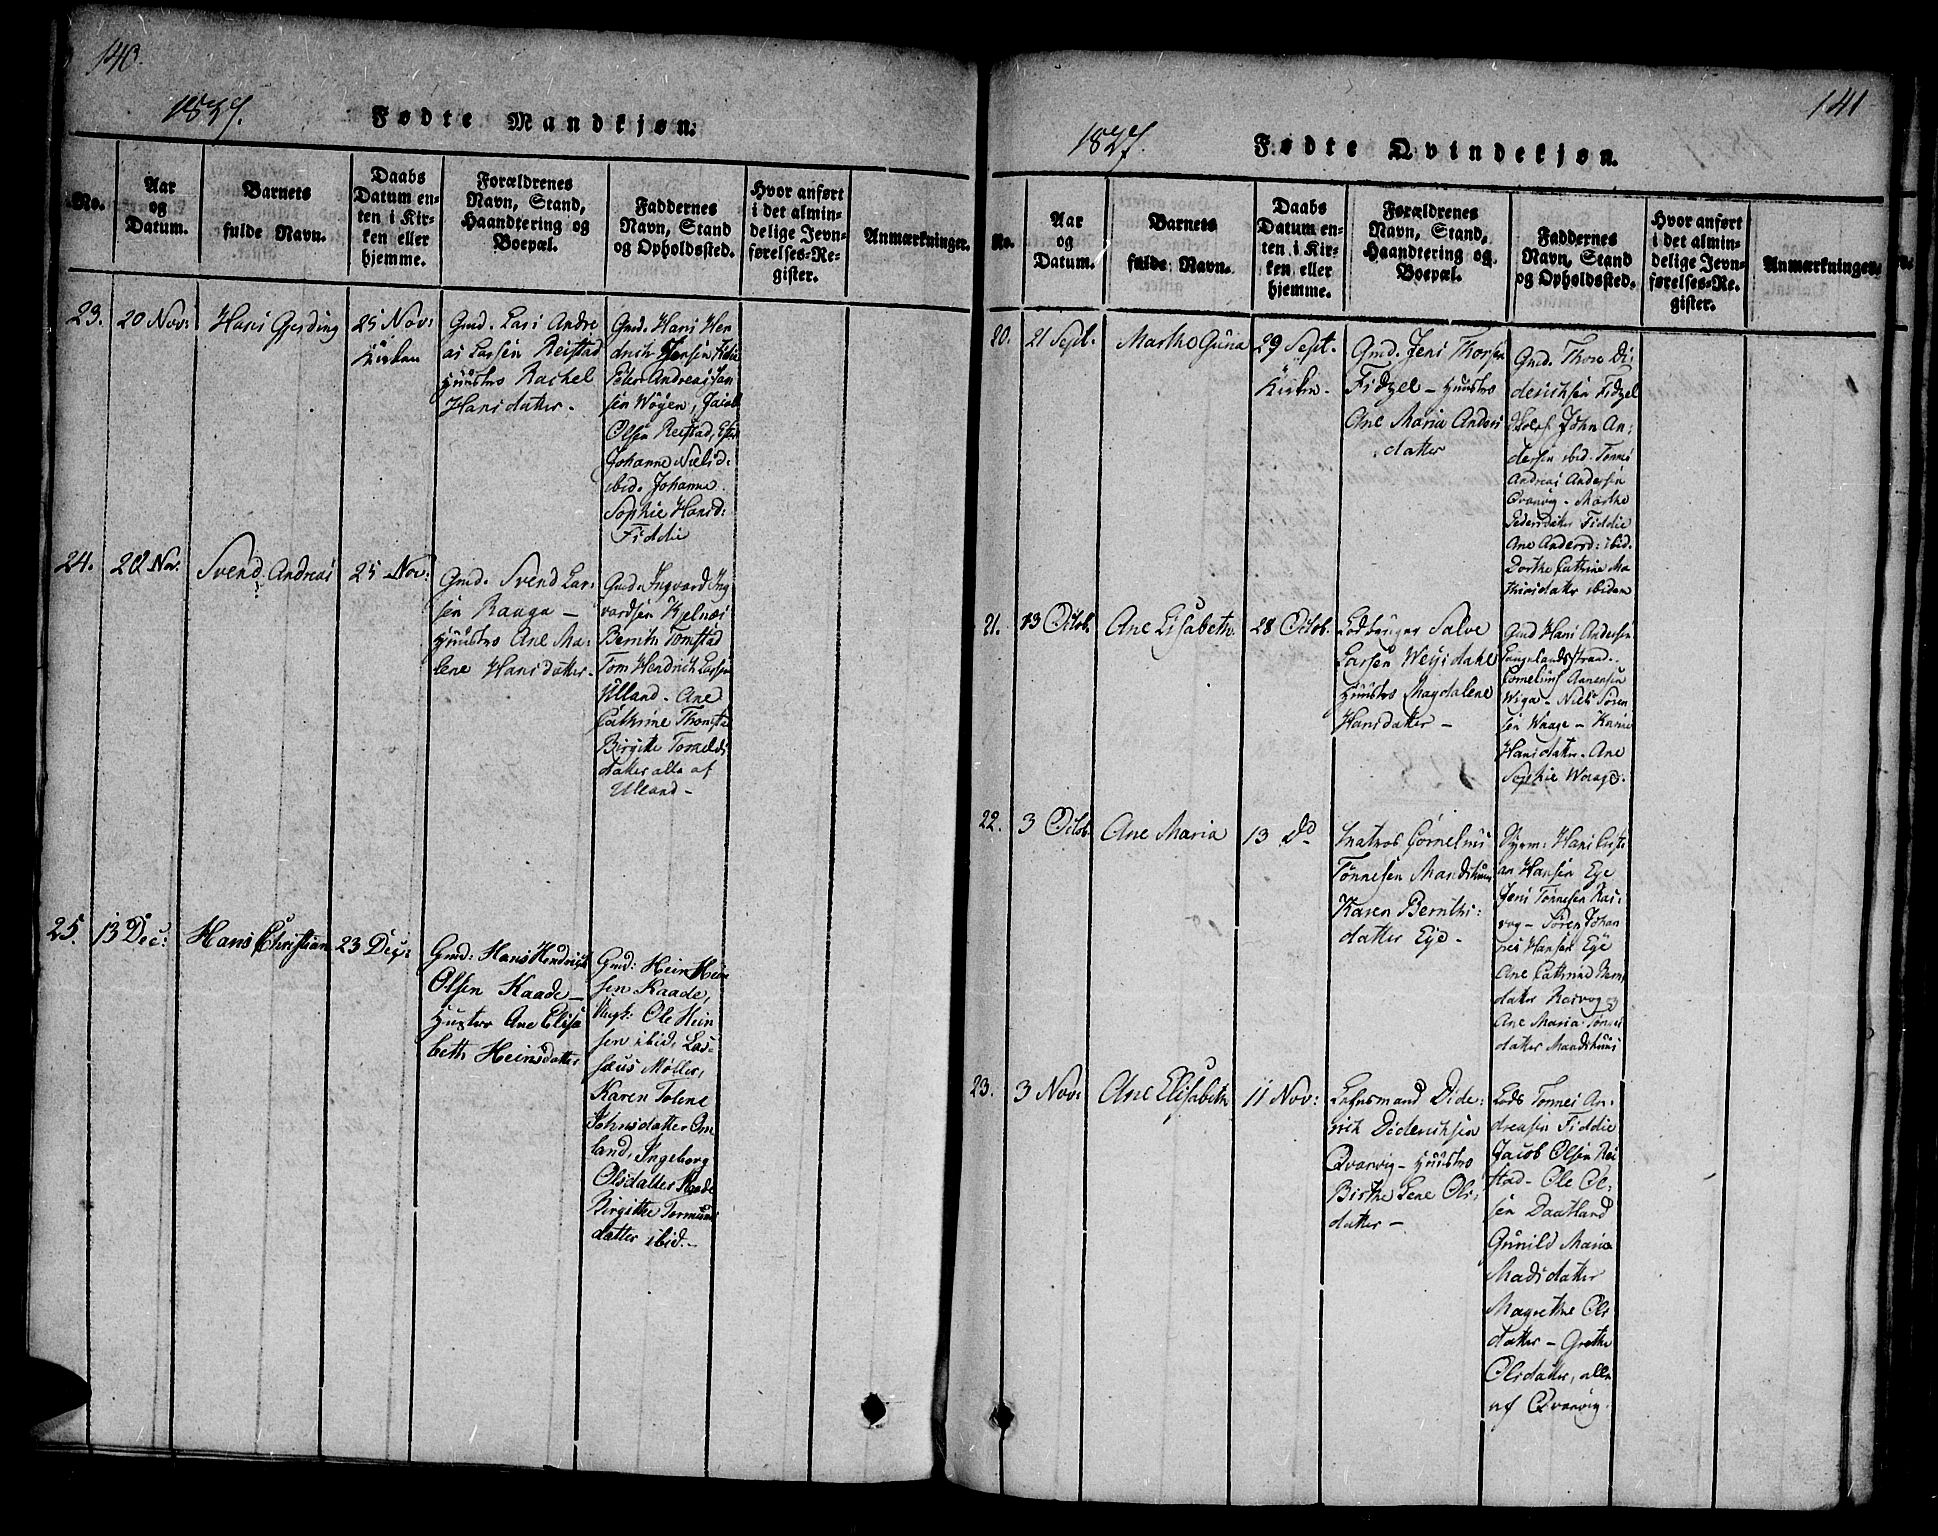 140.
1827.
Fødte Mandkjøn.
No.
Aar
og
Datum.
Barnets
fulde Navn.
Daabs
Datum en-
ten i Kir-
ken eller
hjemme.
Forældrenes
Navn, Stand,
Haandtering og
Boepæl.
Faddernes
Navn, Stand
og Opholdssted.
Hvor anført
i det almin-
delige Jevn-
førelses-Re-
gister.
Anmærkninger.
23.
20 Nov:
Hans Gjerding
25 Nov:
Kirken
Gmd. Lars Andre
as Larsen Reistad
Huustro Rachel
Hansdatter.
Gmd. Hans Hen
drich Jensen Fidie
Peder Andreas Jan
sen Wøyen, Jacob
Olsen Reistad,
Johanne Nielsd:
ibid. Johanne
Sophie Hansd:
Fiddie
24.
20 Nov.
Svend Andreas
25 Nov:
Gmd. Svend Lar-
sen Raaga —
Huustro Ane Ma-
lene Hansdatter.
Gmd. Ingvard Ing
vardsen Kjelnæs
Bernt Tomstad
Tom Hendrich Larsen
Ulland. Ane
Cathrine
Birgitte
datter alle af
Ulland —
25.
13 Dec:
Hans Christian
23 Dec:
Gmd: Hans Hendrich
Olsen Kaade —
Hustro Ane Elisa
beth Heinsdatter
Gmd: Hein Hein
sen Kaade,
Ungk: Ole Hein
sen ibid, Las-
saus Møller,
Karen Tolene
Johnsdatter Om
land, Ingeborg
Olsdatter Kaade
Birgitte Tormuns
datter ibid. —
141
1827.
Fødte Qvindekjøn.
No.
Aar
og
Datum.
Barnets
fulde Navn.
Daabs
Datum en-
ten i Kir-
ken eller
hjemme.
Forældrenes
Navn, Stand,
Haandtering og
Boepæl.
Faddernes
Navn, Stand
og Opholdssted.
Hvor anført
i det almin-
delige Jevn-
førelses-Re-
gister.
Anmærkninger.
20.
21 Sept.
Marthe Guna
29 Sept.
Kirken.
Gmd. Jens Thorsen
Fidzel — Huustro
Ane Maria Anders
datter
Gmd. Thore Di-
derichsen Fidzel
John An-
dersen ibid. Tønnes
Andreas Andersen
Qvarvig — Marthe
Pedersdatter Fiddie
Ane Andersd: ibid.
Dorthe Cathrine Ma
thiasdatter ibidem
21.
13 Octob.
Ane Lisabeth
28 Octob.
Lodborger Salve
Larsen Weisdahl
Huustro Magdalene
Hansdatter —
Gmd Hans Andersen
Langelandsstrand.
Cornelius Aanensen
Wiga — Niels Søren
sen Waage — Karine
Hansdatter. Ane
Sophie Waage.
22.
3 Octob.
Ane Maria
13 Do
Matros Cornelius
Tønnesen Mandshuus
Karen Bernths-
datter Eye —
Styrm: Hans Christi
an Hansen Eye
Jens Tønnesen Ras-
vog — Søren Johan
nes Hansen Eye
Ane Cathrine
datter Rasvog og
Ane Maria Tønnes
datter Mandshuus
23.
3 Nov:
Ane Elisabeth
11 Nov:
Lehnsmand Dide-
rich Dideriksen
Qvarvig — Huustro
Birthe Lene Ols-
datter —
Lods Tønnes An-
dreasen Fiddie
Jacob Olsen Rei
stad — Ole Ol-
sen Daatland
Gunild Maria
Madsdatter
Magrethe Ols
datter — Grethe
Olsdatter, alle
af Qvarvig.